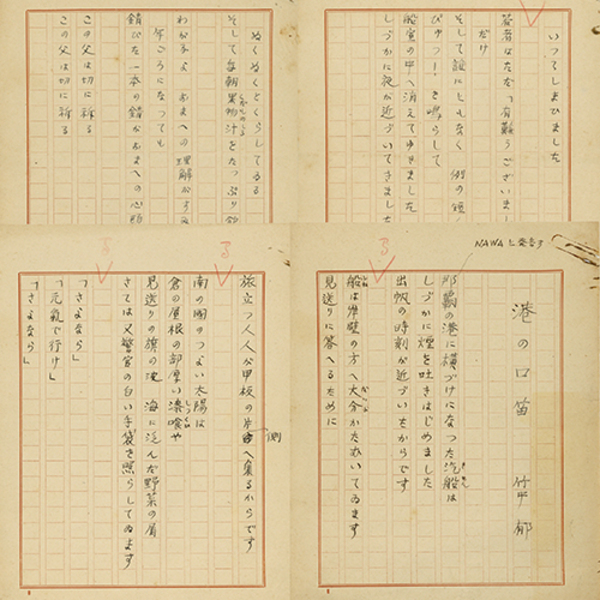 いつてしまひました
だけ
そして誰にともなく 例の短
ぴゆつ！と鳴らして
船室の中へ消えてゆきました
しづかに夜が近づいてきました
ぬくぬくとくらしてゐる
そして毎朝果物汁をたつぷり飲
わが子よ おまへの理解がす
年ごろになつても
錆びた一本の錨がおまへの心
この父は切に祈る
この父は切に祈る
NAWAと發音す
港の口笛 竹中郁
那覇の港に横づけになつた汽船は
しづかに煙を吐きはじめました
出帆の時刻が近づいたからです
船は岸壁の方へ大分かたむいてゐます
見送りに答へるために
旅立つ人人が甲板の片側へ集るからです
南の国のつよい太陽は
倉の屋根の部厚い漆喰や
見送りの旗の波 海に泛んだ野菜の屑
さては又警官の白い手袋を照らしてゐます
「さよなら」
「元氣で行け」
「さよなら」